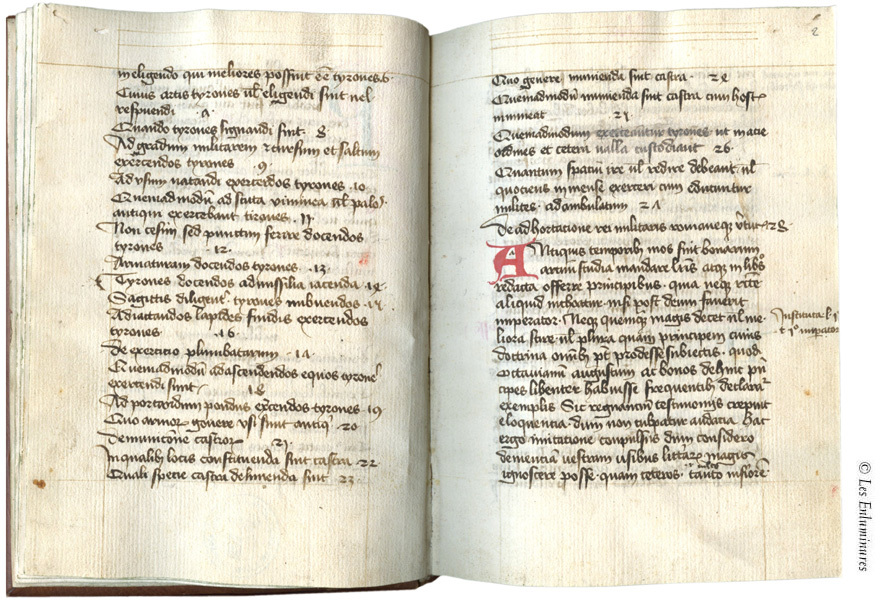 in eligendo qui meliores possint eē tyrones .6.
Cuius artis tyrones ul' eligendi sint uel
respuendi .7.
Quando tyrones signandi sint. 8
Ad gradum militarem et cursum et saltum
exercendos tyrones .9.
Ad usum natandi exercendos tyrones .10
Quemadmodū ad scuta viminea ul' ad palos
antiqui exercebant tirones .11
Non cesim sed punctim ferire docendos
tyrones .12.
Armaturam docendos tyrones .13
Tyrones docendos ad missilia iacienda .14
Sagittis diligent' tyrones imbuendos .15
Ad iactandos lapides fundis exercendos
tyrones .16
De exercitio plumbatarum .17
Quemadmodū ad ascendendos equos tyrone'
exercendi sunt .18
Ad portandum pondus exercendos tyrones .19
Quo armor genere usi sunt antiqui .20
De municōne castror 21.
In qualib; locis constituenda sint castra .22
Quali specie castra delinienda sint .23
2
Quo genere munienda sint castra . 24
Quemadmodū munienda sint castra cum hostes
immineat 25
Quemadmodum exercentur tyrones ut in acie
ordines et cetera ualla custodiant 26.
Quantum spatii ire ul' redire debeant ul'
quociens in mense exerceri cum educuntur
milites ad ambulatum 27
De adhortacione rei militaris romaneque v'tut' 28.
Antiquis temporib; mos fuit bonarum
artium studia mandare lr̄is atq; in libros
redacta offerre principibus. quia neq; rēte
aliquid inchoatur nisi post deum fauerit
imperator. Neq; quemq; magis decet ul' me-
liora scire ul' plura quam principem cuius
doctrina omib; pōt prodesse subiectis. quod
octauianum augustum ac bonos dehinc pn̄
cipes libenter habuisse frequentib; declarat'
exemplis. Sic regnantium testimoniis crepuit
eloquentia. dum non culpatur audatia. Hac
ergo imitatione compulsus dum considero
clementiam vestram ausibus litterar magis
ignoscere posse quam ceteros. tanto inferiorē
Instituta
imperator
© Les Enluminures